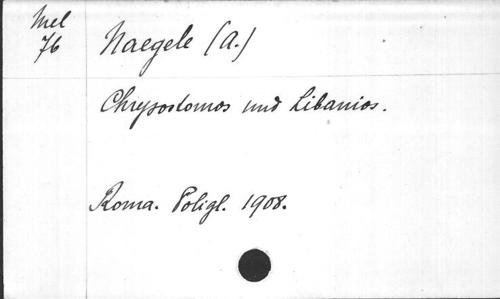 Mel
76
Naegele (A.)
Chrysostomos und Libanios.
Roma. Poligl. 1908.